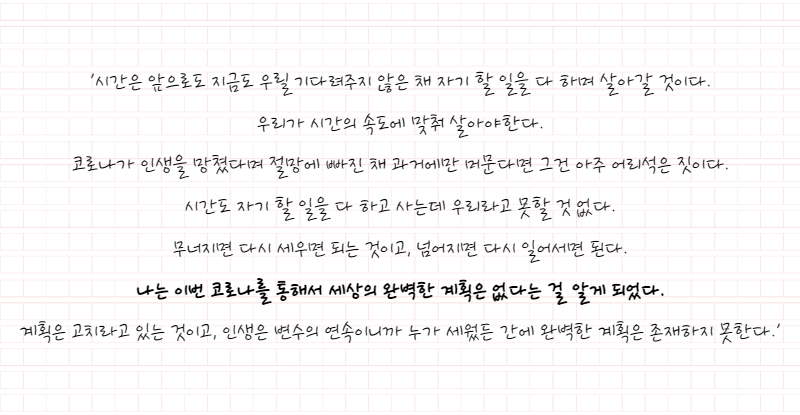 '시간은 앞으로도 지금도 우릴 기다려주지 않은 채 자기 할 일을 다 하며 살아갈 것이다.
우리가 시간의 속도에 맞춰 살아야한다.
코로나가 인생을 망쳤다며 절망에 빠진 채 과거에만 머문다면 그건 아주 어리석은 짓이다.
시간도 자기 할 일을 다 하고 사는데 우리라고 못할 것 없다.
무너지면 다시 세우면 되는 것이고, 넘어지면 다시 일어서면 된다.
나는 이번 코로나를 통해서 세상의 완벽한 계획은 없다는 걸 알게 되었다.
계획은 고치라고 있는 것이고, 인생은 변수의 연속이니까 누가 세웠든 간에 완벽한 계획은 존재하지 못한다.'